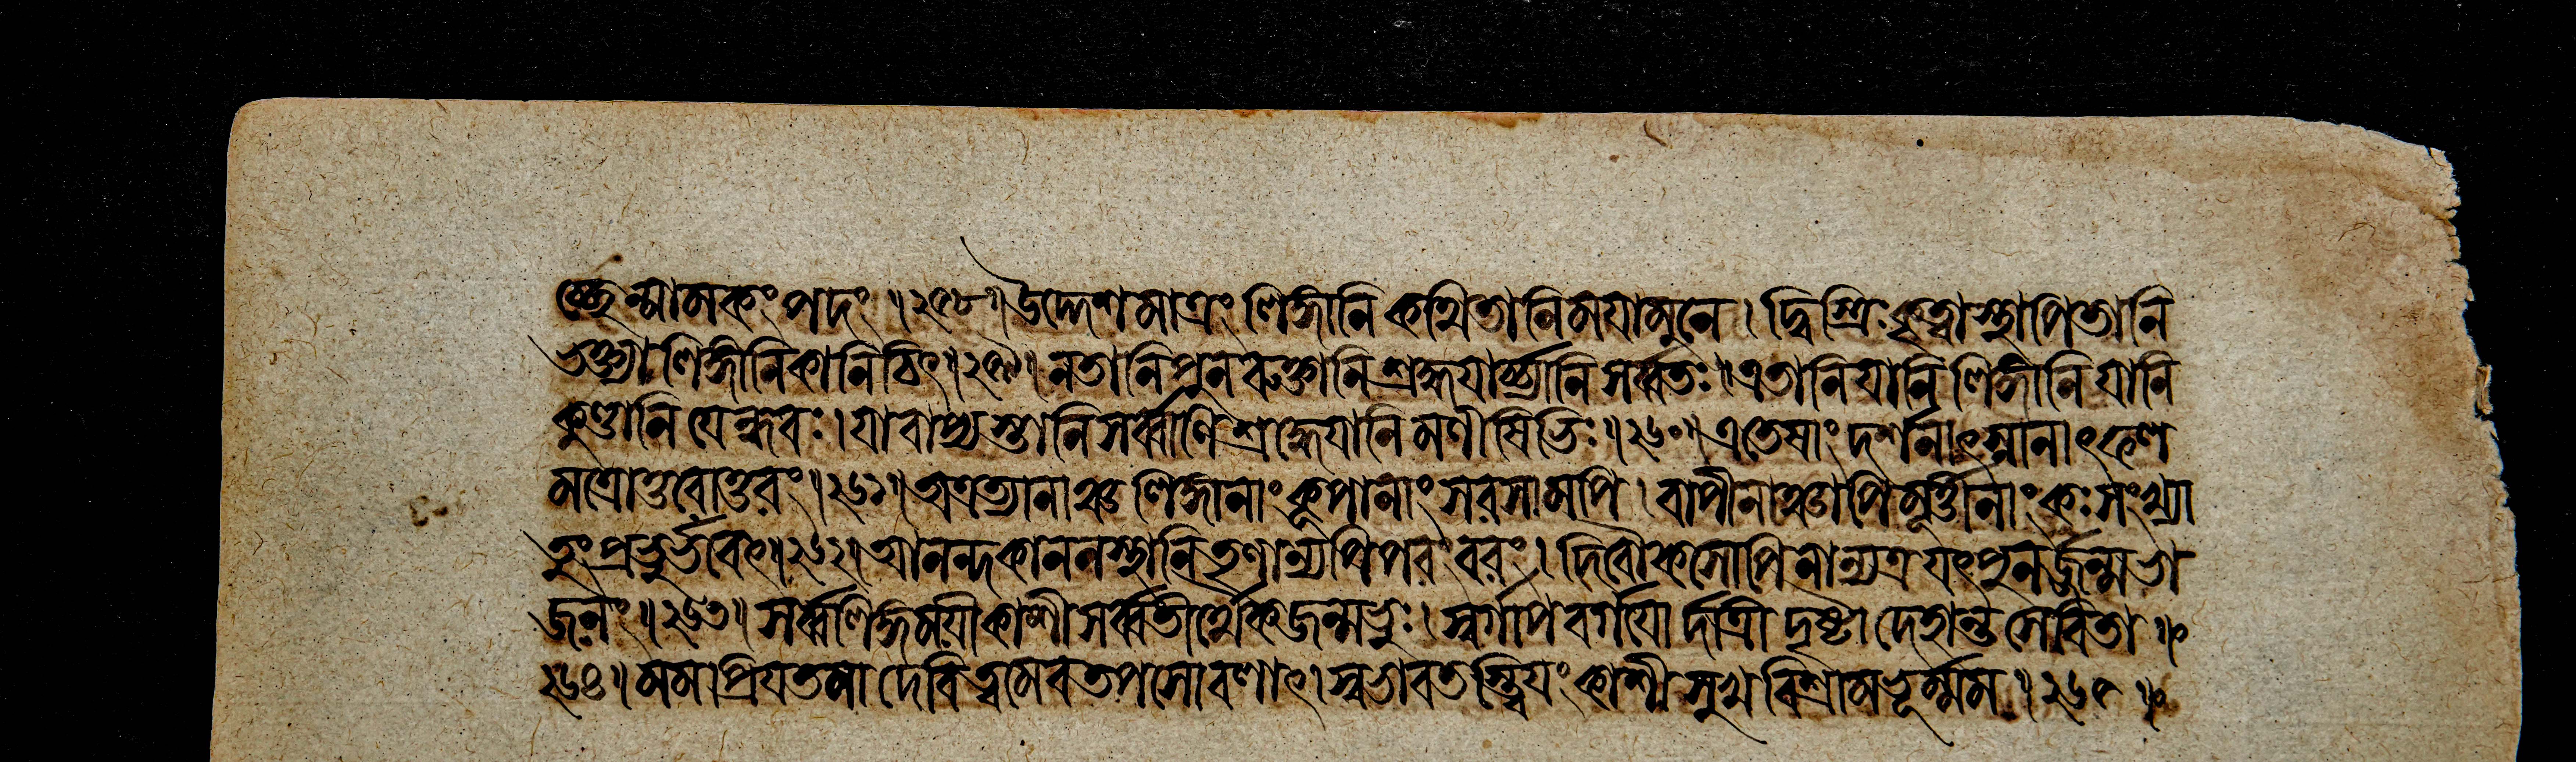 ল্লভেন্মামকং পদং ॥ ২৫৮ ॥ উদ্দেশমাত্রং লিঙ্গানি কথিতানি ময়ামুনে । দ্বিস্ত্রিঃ কৃত্বাস্থাপিতানি
ভক্ত্যা লিঙ্গানি কানিচিৎ ॥ ২৫৯ ॥ ন তানি পুনরুক্তানি শ্রদ্ধয়ার্চ্চ্যানি সর্ব্বতঃ ॥ এতানি যানি লিঙ্গানি যানি
কুণ্ডানি যেন্ধবঃ । যা বাপ্যস্তানি সর্ব্বাণি শ্রদ্ধেয়ানি মণীষিভিঃ ॥ ২৬০ ॥ এতেষাং দর্শনাৎ স্নানাৎ ফল
মত্রোত্তরোত্তরং ॥ ২৬১ ॥ অত্রত্যানাঞ্চ লিঙ্গানাং কূপানাং সরসামপি । বাপীনাঞ্চাপি মূর্ত্তীনাং কঃ সংখ্যা
তুং প্রভুর্ভবেৎ ॥ ২৬২ ॥ আনন্দকাননস্থানি তৃণান্যপি পরং বরং । দিবৌকসোপি নান্যত্র যৎ পুনর্জ্জন্মভা
জনং ॥ ২৬৩ ॥ সর্ব্বলিঙ্গময়ী কাশী সর্ব্বতীর্থৈকজন্মভূঃ । স্বর্গাপবর্গয়ো র্দাত্রী দৃষ্টা দেহান্ত সেবিতা ॥
২৬৪ ॥ মম প্রিয়তমা দেবি ত্বমেব তপসোবলাৎ । স্বভাবতস্ত্বিয়ং কাশী সুখবিশ্রামভূর্ম্মম ॥ ২৬৫ ॥